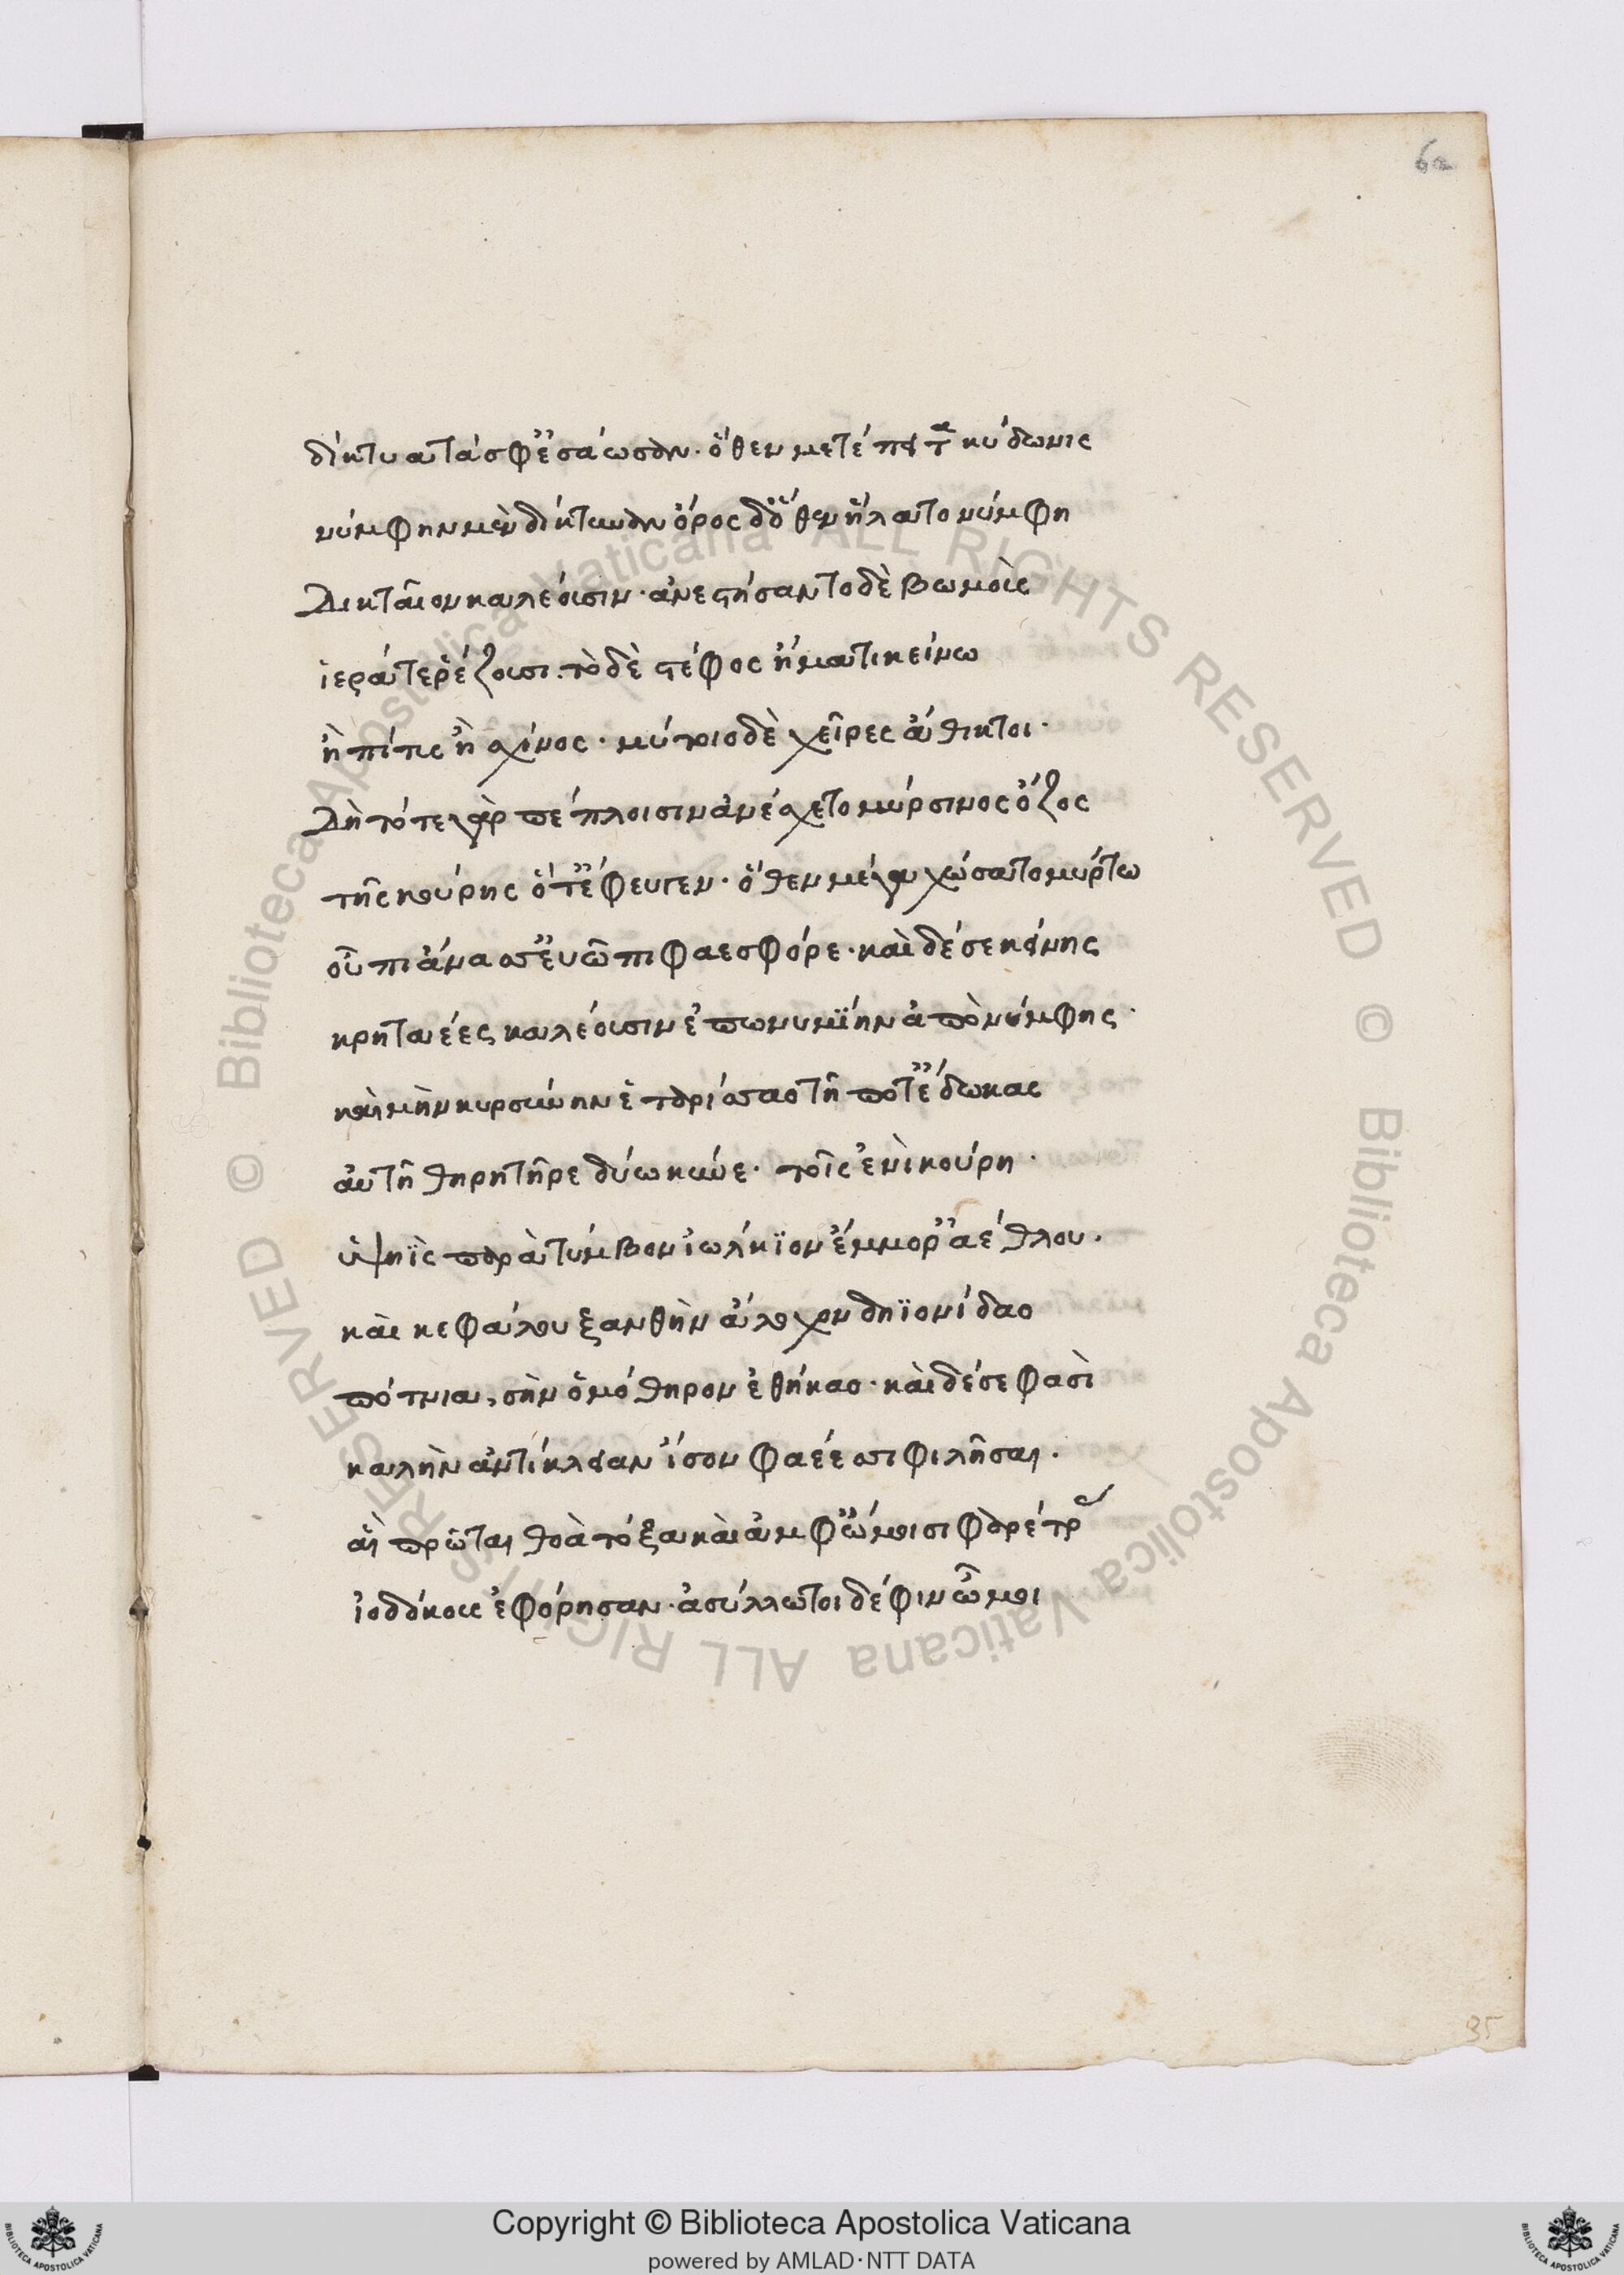 62
δίκτυα τά σφ' ἐσάωσεν. ὅθεν μετέπειτα κύδωνις
νύμφην μὲν δίκτυναν ὄρος δ' ὅθεν ἥλατο νύμφη
Δικταῖον καλέουσιν. ἀνεστήσαντο δὲ βωμοὶς
ἱερά τε ῥέζουσι. τὸ δὲ στέφος ἤματι κείνω
ἢ πίτυς ἢ σχίνος. μύρτοιο δὲ χεῖρες ἄθικτοι.
Δὴ τότε γὰρ πέπλοισιν ἀνέσχετο μύρσινος ὄζος
τῆς κούρης ὅτ' ἔφευγεν. ὅθεν μέγα χώσατο μύρτω
οὖπι ἄνασσ' εὐῶπι φαεσφόρε. καὶ δέ σε κείνης
κρηταέες καλέουσιν ἐπωνυμΐην ἀπὸ νύμφης.
καὶ μὴν κυρσώνην ἑταρίσσαο τῆ ποτ' ἔδωκας
αὐτῆ θηρητῆρε δύω κύνε. τοῖς ἐνὶ κούρη.
ὑψηῒς παρὰ τύμβον ἰωλκῒον ἔμμορ' ἀέθλου.
καὶ κεφάλου ξανθὴν ἄλοχον δηϊονίδαο
πότνια, σὴν ὁμόθηρον ἐθήκαο. καὶ δέ σε φασὶ
καλὴν ἀντίκλειαν ἴσον φαέεσσι φιλῆσαι.
αἳ πρῶται θοὰ τόξα καὶ ἀμφ' ὤμοισι φαρέτρας
ἰοδόκους ἐφόρησαν. ἀσύλλωτοι δέ φιν ὦμοι
35
© Biblioteca Apostolica Vaticana ALL RIGHTS RESERVED © Biblioteca Apostolica Vaticana ALL RIGHTS RESERVED
Copyright © Biblioteca Apostolica Vaticana
powered by AMLAD·NTT DATA